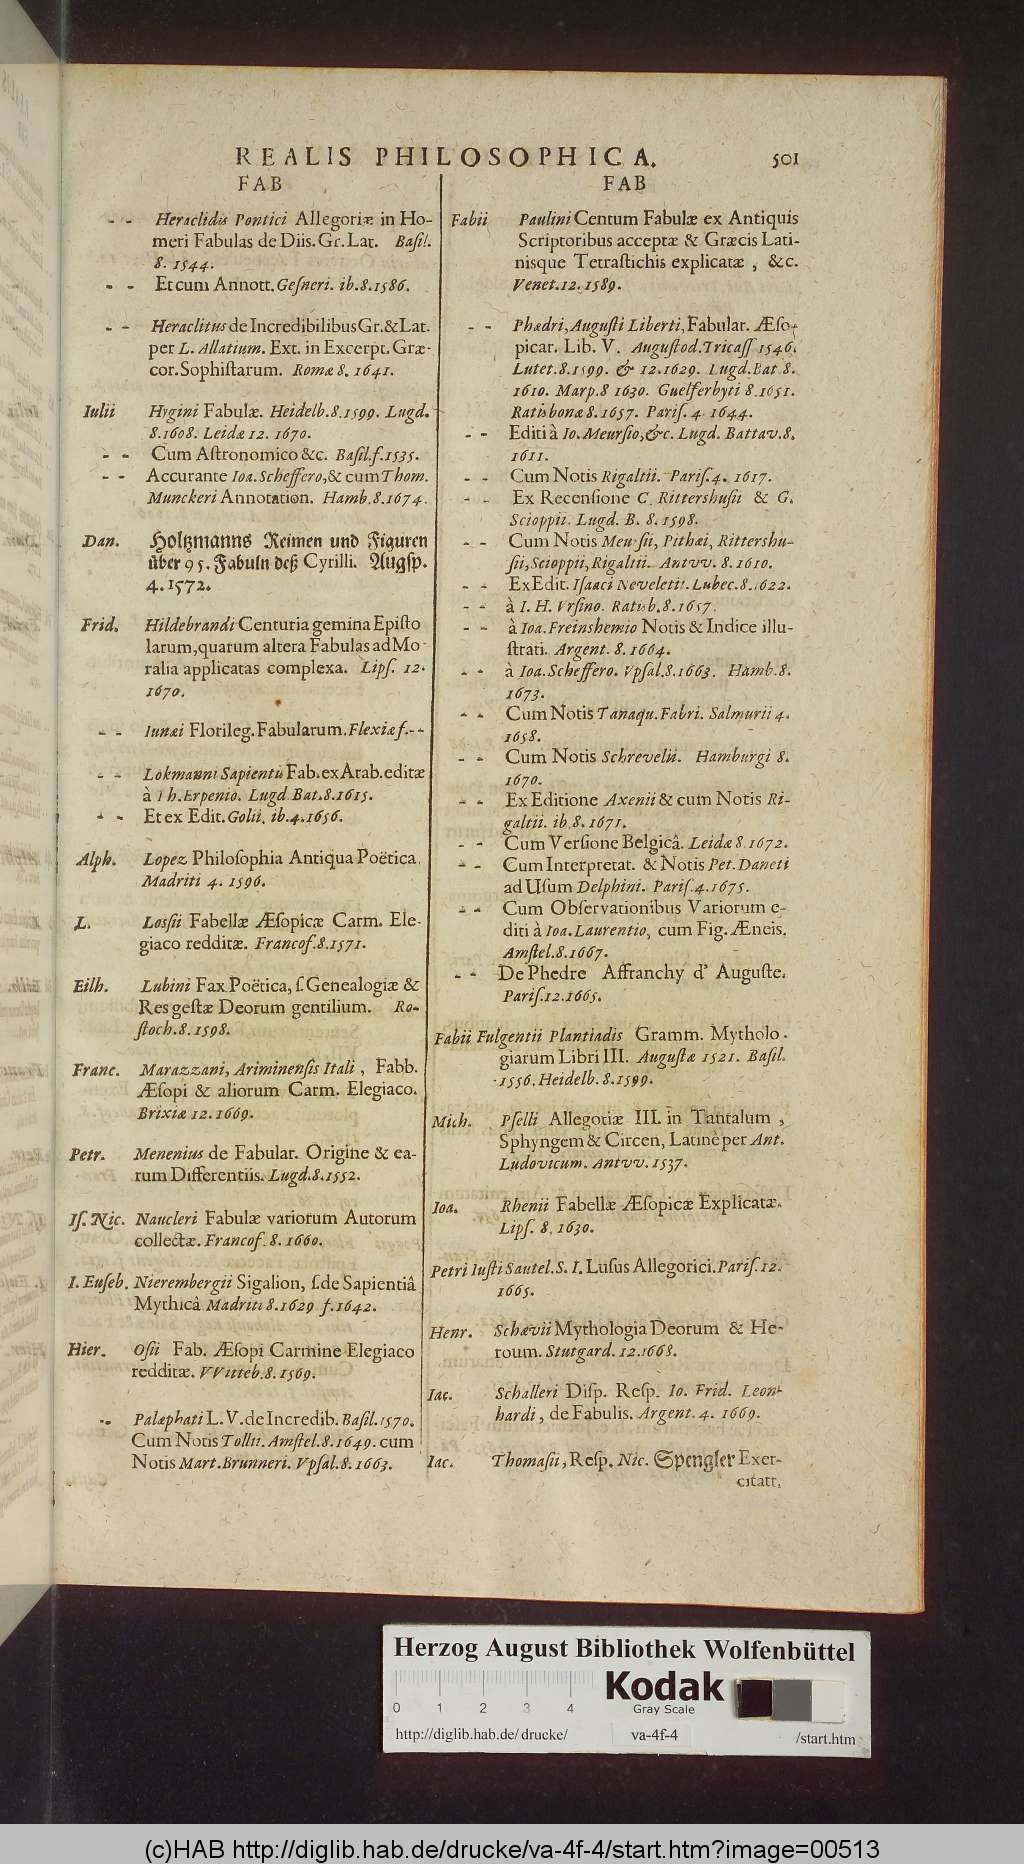 REALIS PHILOSOPHICA. 501
FAB
- - Heraclidis Pontici Allegoriæ in Ho-
meri Fabulas de Diis. Gr. Lat. Basil.
8. 1544.
- - Et cum Annott. Gesneri. ib. 8. 1586.
- - Heraclitus de Incredibilibus Gr. & Lat.
per L. Allatium. Ext. in Excerpt. Græ-
cor. Sophistarum. Romæ 8. 1641.
Iulii Hygini Fabulæ. Heidelb. 8. 1599. Lugd.
8. 1608. Leidæ 12. 1670.
- - Cum Astronomico &c. Basil. f. 1535.
- - Accurante Ioa. Scheffero, & cum Thom.
Munckeri Annotation. Hamb. 8. 1674.
Dan. Holtzmanns Reimen und Figuren
über 95. Fabuln deß Cyrilli. Augsp.
4. 1572.
Frid. Hildebrandi Centuria gemina Episto
larum, quarum altera Fabulas ad Mo-
ralia applicatas complexa. Lips. 12.
1670.
- - Iunæi Florileg. Fabularum. Flexiæ f. - -
- - Lokmanni Sapientis Fab. ex Arab. editæ
à Th. Erpenio. Lugd. Bat. 8. 1615.
- - Et ex Edit. Golii. ib. 4. 1656.
Alph. Lopez Philosophia Antiqua Poëtica.
Madriti 4. 1596.
L. Lossii Fabellæ Æsopicæ Carm. Ele-
giaco redditæ. Francof. 8. 1571.
Eilh. Lubini Fax Poëtica, s. Genealogiæ &
Res gestæ Deorum gentilium. Ro-
stoch. 8. 1598.
Franc. Marazzani, Ariminensis Itali, Fabb.
Æsopi & aliorum Carm. Elegiaco.
Brixiæ 12. 1669.
Petr. Menenius de Fabular. Origine & ea-
rum Differentiis. Lugd. 8. 1552.
Is. Nic. Naucleri Fabulæ variorum Autorum
collectæ. Francof. 8. 1660.
I. Euseb. Nierembergii Sigalion, s. de Sapientiâ
Mythicâ Madriti 8. 1629 f. 1642.
Hier. Osii Fab. Æsopi Carmine Elegiaco
redditæ. VVitteb. 8. 1569.
- - Palæphati L. V. de Incredib. Basil. 1570.
Cum Notis Tollii. Amstel. 8. 1649. cum
Notis Mart. Brunneri. Vpsal. 8. 1663.
FAB
Fabii Paulini Centum Fabulæ ex Antiquis
Scriptoribus acceptæ & Græcis Lati-
nisque Tetrastichis explicatæ, &c.
Venet. 12. 1589.
- - Phædri, Augusti Liberti, Fabular. Æso-
picar. Lib. V. Augustod. Tricass 1546.
Lutet. 8. 1599. & 12. 1629. Lugd. Bat 8.
1610. Marp. 8 1630. Guelferbyti 8. 1651.
Ratisbonæ 8. 1657. Paris. 4. 1644.
- - Editi à Io. Meursio, &c. Lugd. Battav. 8.
1611.
- - Cum Notis Rigaltii. Paris. 4. 1617.
- - Ex Recensione C. Rittershusii & G.
Scioppii. Lugd. B. 8. 1598.
- - Cum Notis Meursii, Pithæi, Rittershu-
sii, Scioppii, Rigaltii. Antvv. 8. 1610.
- - Ex Edit. Isaaci Neveleti. Lubec. 8. 1622.
- - à I. H. Vrsino. Ratisb. 8. 1657.
- - à Ioa. Freinshemio Notis & Indice illu-
strati. Argent. 8. 1664.
- - à Ioa. Scheffero. Vpsal. 8. 1663. Hamb. 8.
1673.
- - Cum Notis Tanaqu. Fabri. Salmurii 4.
1658.
- - Cum Notis Schrevelii. Hamburgi 8.
1670.
- - Ex Editione Axenii & cum Notis Ri-
galtii. ib. 8. 1671.
- - Cum Versione Belgicâ. Leidæ 8. 1672.
- - Cum Interpretat. & Notis Pet. Daneti
ad Usum Delphini. Paris. 4. 1675.
- - Cum Observationibus Variorum e-
diti à Ioa. Laurentio, cum Fig. Æneis.
Amstel. 8. 1667.
- - De Phedre Affranchy d' Auguste.
Paris. 12. 1665.
Fabii Fulgentii Plantiadis Gramm. Mytholo-
giarum Libri III. Augustæ 1521. Basil.
1556. Heidelb. 8. 1599.
Mich. Pselli Allegoriæ III. in Tantalum,
Sphyngem & Circen, Latinè per Ant.
Ludovicum. Antvv. 1537.
Ioa. Rhenii Fabellæ Æsopicæ Explicatæ.
Lips. 8. 1630.
Petri Iusti Sautel. S. I. Lusus Allegorici. Paris. 12.
1665.
Henr. Schævii Mythologia Deorum & He-
roum. Stutgard. 12. 1668.
Iac. Schalleri Disp. Resp. Io. Frid. Leon-
hardi, de Fabulis. Argent. 4. 1669.
Iac. Thomasii, Resp. Nic. Spengler Exer-
citatt.
Herzog August Bibliothek Wolfenbüttel
0 1 2 3 4
Kodak
Gray Scale
http://diglib.hab.de/drucke/ va-4f-4 /start.htm
(c)HAB http://diglib.hab.de/drucke/va-4f-4/start.htm?image=00513